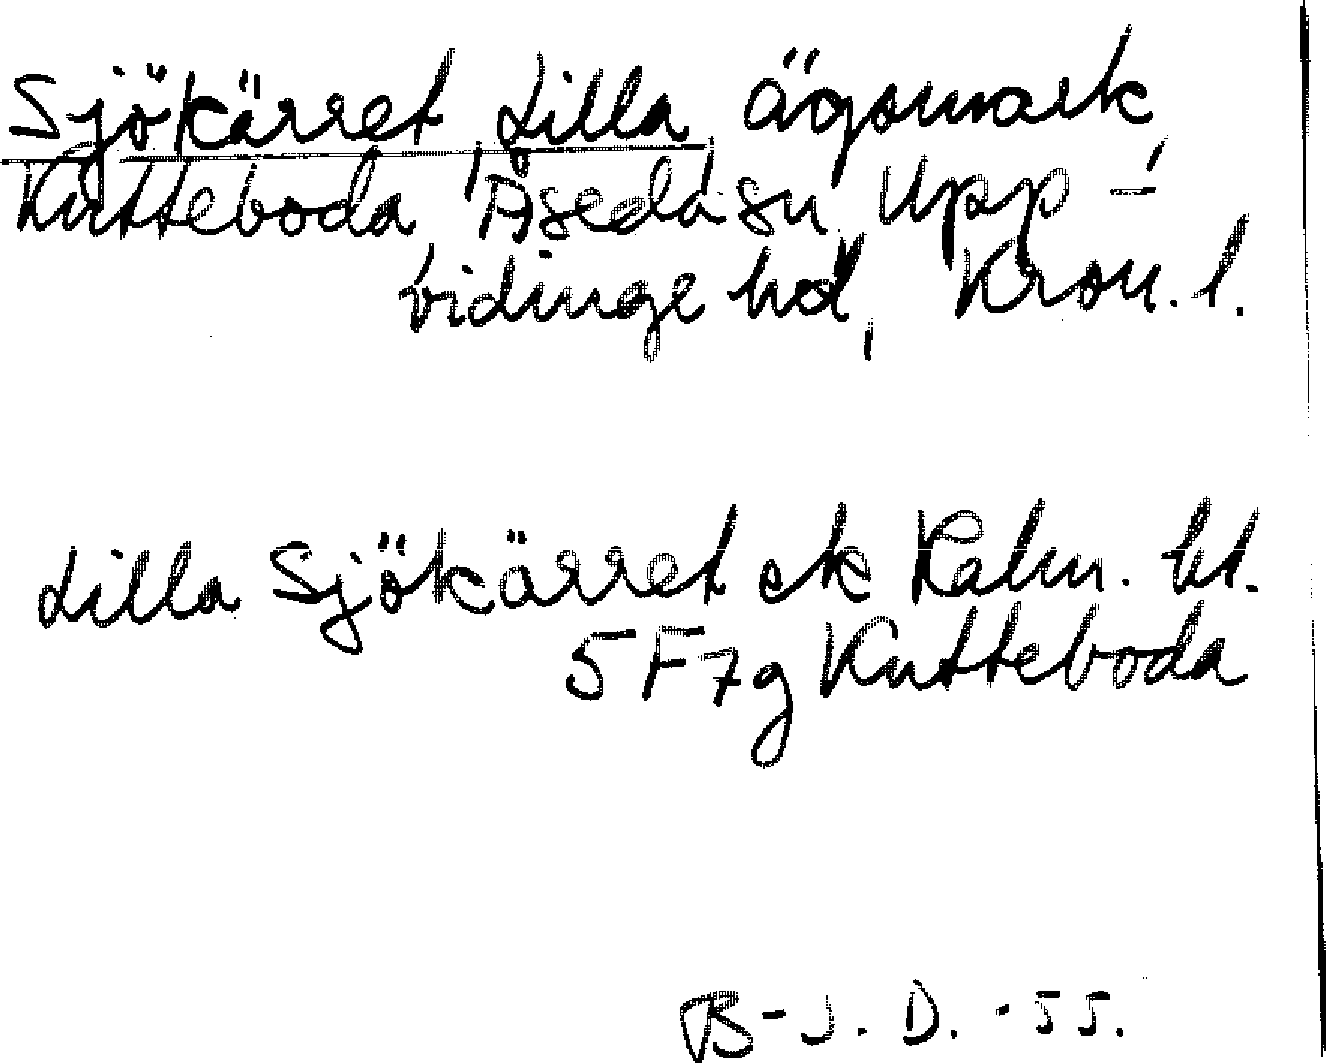 Sjökärret, Lilla, ägomark,
Kutteboda, Åseda sn, Upp-
vidinge hd, Kron. l.
Lilla Sjökärret ek Kalm. lt.
5F7g Kutteboda
B-J. D. -55.